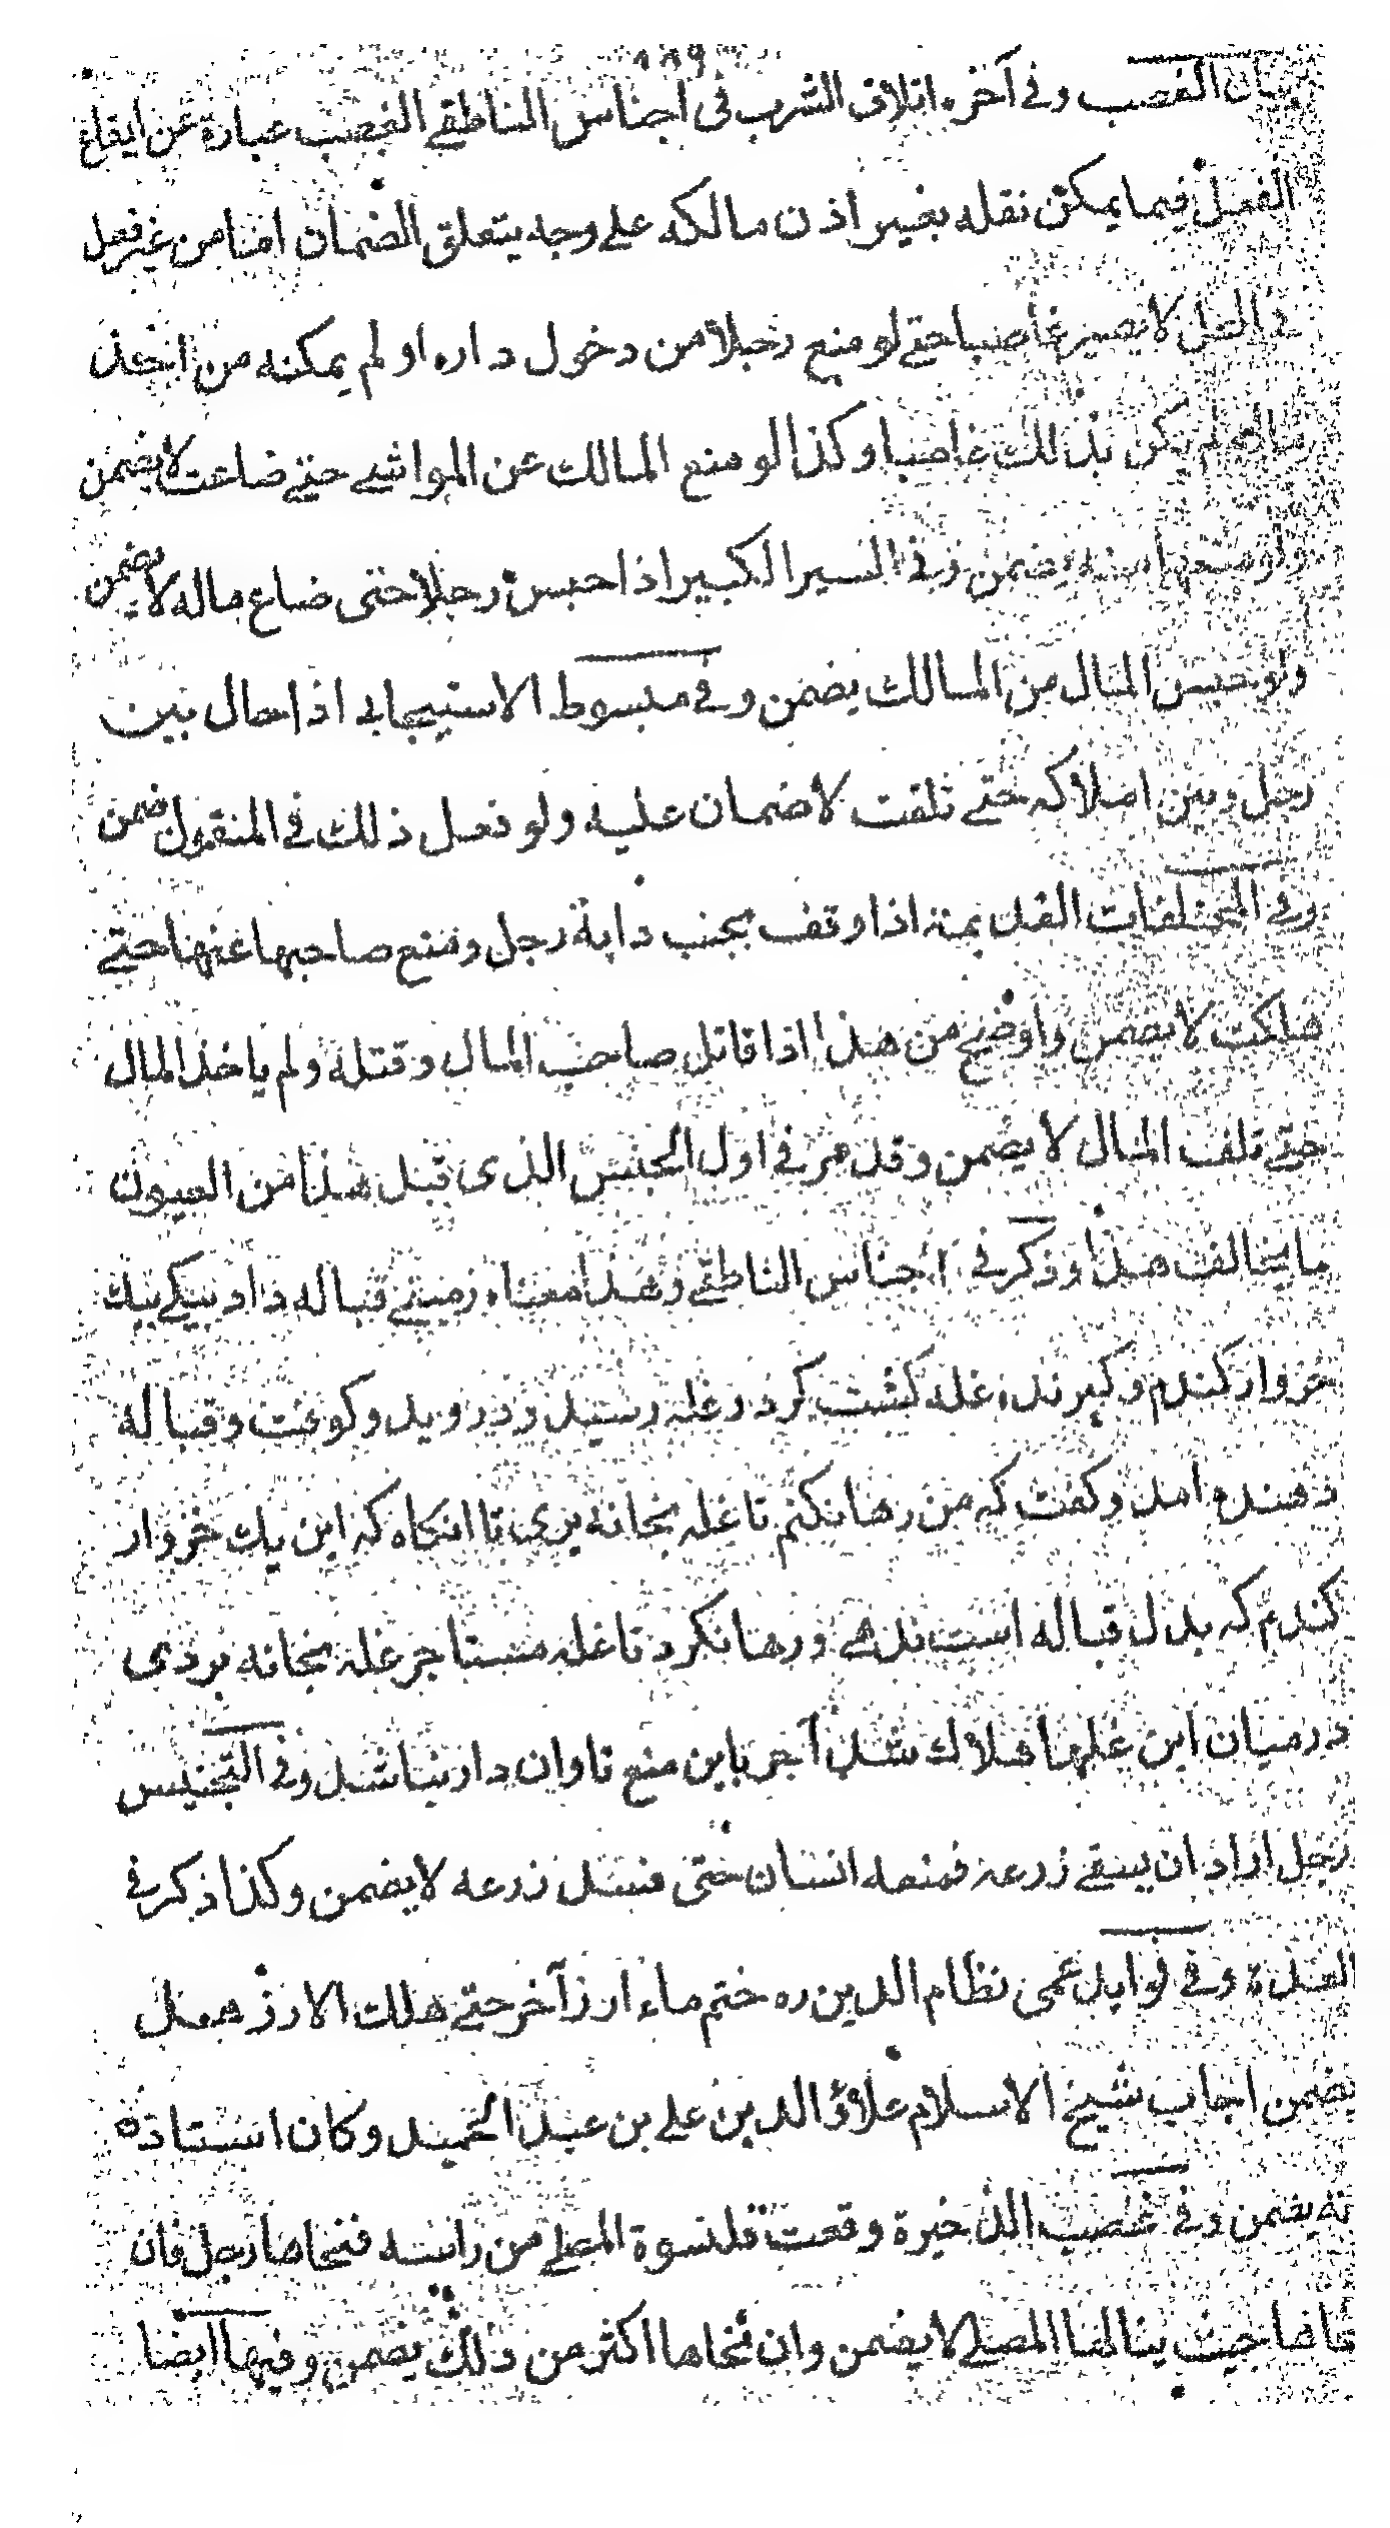 بيان الغصب وفي آخره اتلاف الشرب في اجناس الناطفي الغصب عبارة عن ايقاع
الفعل فيما يمكن نقله بغير اذن مالكه على وجه يتعلق الضمان امنا من غير فعل
في المحل لا يصير غاصبا حتى لو منع رجلا من دخول داره او لم يمكنه من اخذ
ماله لم يكن بذلك غاصبا وكذا لو منع المالك عن المواشي حتى ضاعت لا يضمن
ولو منعها منه يضمن وفي السير الكبير اذا حبس رجلا حتى ضاع ماله لا يضمن
ولو حبس المال من المالك يضمن وفي مبسوط الاسبيجابي اذا حال بين
رجل وبين املاكه حتى تلفت لا ضمان عليه ولو فعل ذلك في المنقول ضمن
وفي المختلفات القديمة اذا وقف بجنب دابة رجل ومنع صاحبها عنها حتى
هلكت لا يضمن واوضح من هذا اذا قاتل صاحب المال وقتله ولم ياخذ المال
حتى تلف المال لا يضمن وقد مر في اول الجنس الذي قبل هذا من العيون
ما يخالف هذا وذكر في اجناس الناطفي وهذا معناه زميني قباله داد بيكي بيك
خروار كندم وكيرنده غله كشت كرد وغله رسيد ودرويد وكوفت وقباله
دهنده امد وكفت كه من رها نكنم تا غله بخانه بري تا انكاه كه اين يك خروار
كندم كه بدل قباله است بدهي ورها نكرد تا غله مستاجر غله بخانه بردي
در ميان اين غلها هلاك شد آجر باين منع تاوان دار نباشد وفي التجنيس
رجل اراد ان يسقي زرعه فمنعه انسان حتى فسد زرعه لا يضمن وكذا ذكر في
العدة وفي فوايد عمى نظام الدين ره ختم ماء ارز آخر حتى هلك الارز هل
يضمن اجاب شيخ الاسلام علاؤ الدين علي بن عبد الحميد وكان استاذه
انه يضمن وفي غصب الذخيرة وقعت قلنسوة المصلي من راسه فنحاها رجل فان
نحاها حيث ينالها المصلي لا يضمن وان نحاها اكثر من ذلك يضمن وفيها ايضا